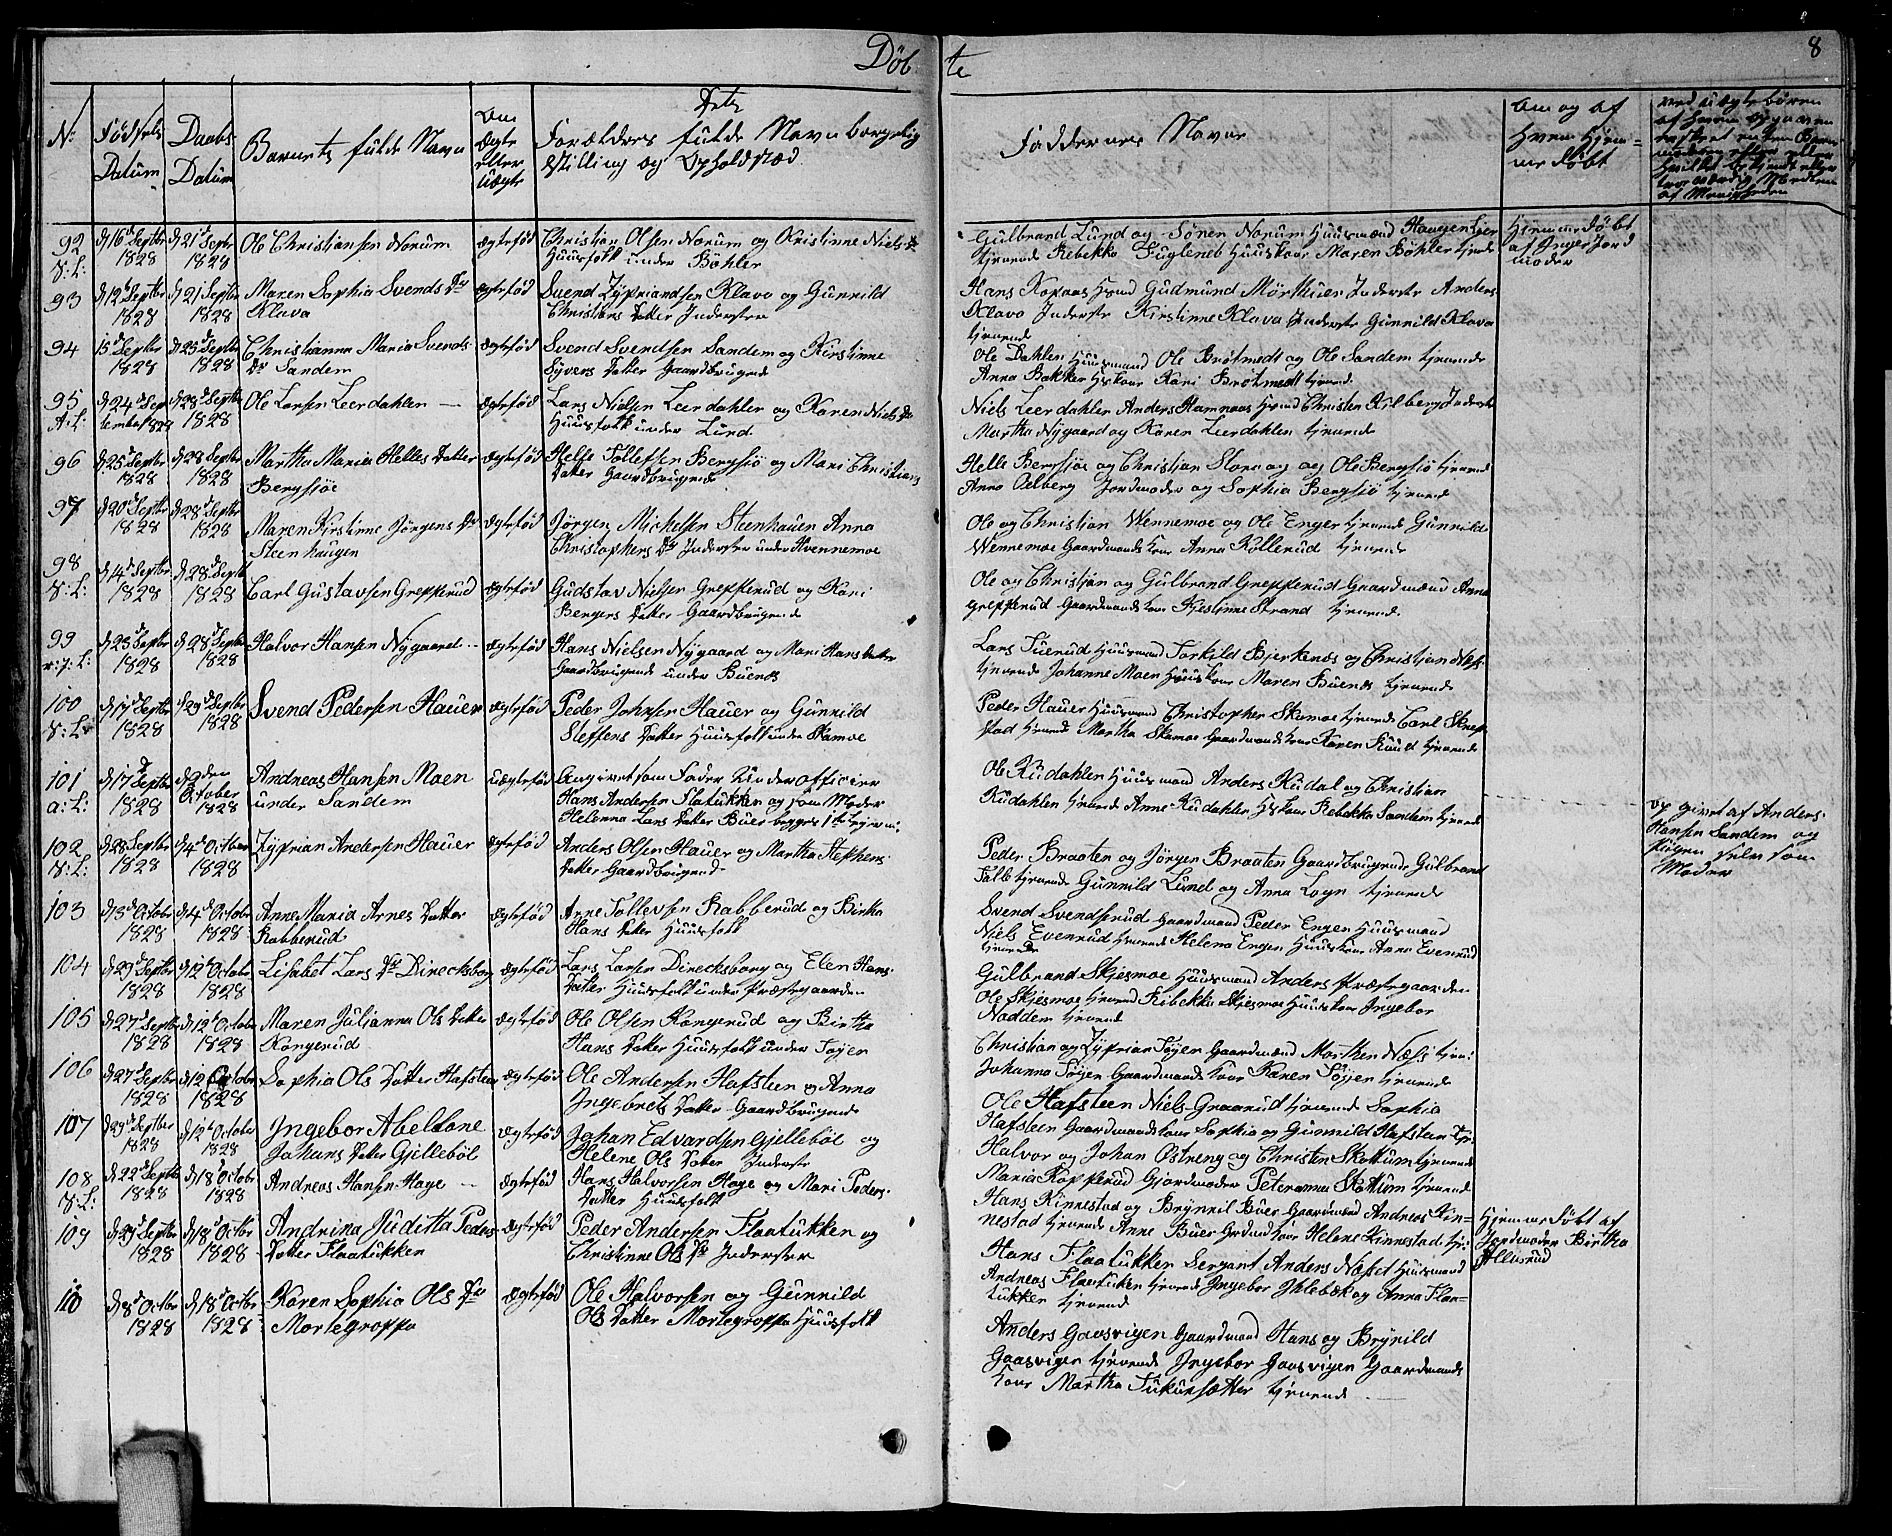 Døb
te
8
No
Fødsels
Datum
Daabs
Datum
Barnets fulde Navn
Om
Ægte
eller
Uægte
Dets
Forældres fulde Navn borgerlig
Stilling og Opholdsted
Faddernes Navne
Om og af
hvem hjem=
me døbt
92
16d Septbr
1828
21d Septbr
1828
Ole Christiansen Norum
ægtefød
Christian Olsen Norum og Kristinne Niels Dr
Huusfolk under Böhler
Gulbrand Lund og Sören Norum Huusmænd Haugen
tjenende Rebekka Fugleneb Huuskone Maren Böhler tjende
Hjemmedøbt
af Jord
moder
93
12 Septbr
1828
21 Septbr
1828
Maren Sophia Svends Dr
Klava
ægtefød
Svend Zypriandsen Klavo og Gunnild
Christians Datter Inderster
Hans Gudmund Mörthuer Inderste Anders
Klavo Inderste Kirstinne Klava Inderste Gunnild Klava
tjenende
94
15d Septbr
1828
25d Septbr
1828
Christianna Maria Svends
Dr Sandem
ægtefød
Svend Svendsen Sandem og Kirstinne
Syvers Datter Gaardbrugende
Ole Dahlen Huusmand Ole Brötmedt og Ole Sandem tjenende
Anna Bakker Kari Brötmedt tjenende
95
A:L:
24d Sep
tember 1828
28d Septbr
1828
Ole Larsen Leerdahlen
ægtefød
Lars Nielsen Leerdahler og Karen Niels Dr
Huusfolk under Lund
Niels Leerdahler Anders Hamnaas Christen Kilberg Inderste
Martha Nygaard og Karen Leerdahlen tjenende
96
25d Septbr
1828
28 Septbr
1828
Martha Maria Helles Datter
Bergsjøe
ægtefød
Helle Tollefsen Bergsjö og Mari Christians
Datter Gaardbrugende
Helle Bergsjøe og Christian og Ole Bergsjö tjenende
Anne Jordmoder og Sophia Bergsjö tjenende
97
20d Septbr
1828
28d Septbr
1828
Maren Kirstinne Jörgens Dr
Steenhaugen
ægtefød
Jörgen Michelsen Steenhauen Anna
Christophers Dr Inderster under Hvennemoe
Ole og Christian Wennemoe og Ole Enger tjenende Gunnild
Wennemoe Gaardmands kone Anna Kollerud tjenende
98
14d Septbr
1828
28d Septbr
1828
Carl Gustavsen Grepperud
ægtefød
Gudstav Nielsen Grepperud og Kari
Bergers Datter Gaardbrugende
Ole og Christian og Gulbrand Grepperud Gaardmænd Anna
Grepperud Gaardmands kone Kjestinne Strand tjenende
99
23d Septbr
1828
28d Septbr
1828
Halvor Hansen Nygaard
ægtefød
Hans Nielsen Nygaard og Mari Hans Datter
Gaardbrugende under Buenes
Lars Tuerud Huusmand Torkild Bjerkenæs og Christian Næs
tjenende Johanne Moen Huuskone Maren Buenes tjenende
100
17d Septbr
1828
29d Septbr
1828
Svend Pedersen Hauer
ægtefød
Peder Johnsen Hauer og Gunnild
Steffens Datter Huusfolk under Skamoe
Peder Hauer Huusmand Christopher Skamoe tjenende Carl
stad tjenende Martha Skamoe Gaardmands kone Karen Ruud tjenende
101
a:L:
17d Septbr
1828
October
1828
Andreas Hansen Moen
under Sandem
uægtefød
Angivet som Fader Underofficier
Hans Andersen Flatukken og som Moder
Helenna Lars Datter Buer begges 1te
Ole Kudahlen Huusmand Anders Kudal og Christian
Kudahlen tjenende Anne Kudahler Rebekka Sandem tjenende
op givet af Anders
Hansen Sandem og
Pigen selv som
Moder
102
28 Septbr
1828
4d October
1828
Zyprian Andersen Hauer
ægtefød
Anders Olsen Hauer og Martha Stephens
Datter Gaardbrugende
Peder Braaten og Jörgen Braaten Gaardbrugende Gulbrand
tjenende Gunnild Lund og Anna tjenende
103
3d Octobr
1828
4d Octobr
1828
Anne Maria Arnes Datter
Rabberud
ægtefød
Arne Tollevsen Rabberud og Birtha
Hans Datter Huusfolk
Svend Svendserud Gaardmand Peder Engen Huusmand
Niels Evenrud tjenende Helena Engen Huuskone Anne Evenrud
tjenende
104
29d Septbr
1828
12t Octobr
1828
Lisabet Lars Dr Direcksborg
ægtefød
Lars Larsen Direcksborg og Elen Hans
Datter Huusfolk under Præstegaarden
Gulbrand Skjesmoe Huusmand Anders Præstegaarden
Ole Skjesmoe tjenend Ribekka Skjesmoe Huuskone Ingebor
Noddem tjenend
105
27d Septbr
1828
12t Octobr
1828
Maren Julianna Ols Datter
Kongerud
ægtefød
Ole Olsen Kongerud og Birtha
Hans Datter Huusfolk under Töjen
Christian og Zyprian Töjen Gaardmænd Morthen Næss tjen:
Johanna Töjen Gaardmands kone Karen Töjen tjenende
106
27d Septbr
1828
12 Octobr
1828
Sophia Ols Datter Hafsteen
ægtefød
Ole Andersen Hafsteen og Anna
Ingebrets Datter Gaardbrugende
Ole Hafsteen Niels Graarud tjenende Sophia
Hafsteen Gaardmands kone Sophia og Gunnild Hafsteen tje:
107
29d Septbr
1828
12t Octobr
1828
Ingebor Abellone
Johans Datter Gjellebøl
ægtefød
Johan Edvardsen Gjelleböl og
Helene Ols Datter Inderste
Halvor og Johan Østreng og Christen Skottum tjenende
Maria Kopperud Gjordmoder Peteranna Skottum tjenend
108
22d Septbr
1828
18d Octobr
1828
Andreas Hansen Hage
ægtefød
Hans Halvorsen Hage og Mari Peders
Datter Huusfolk
Hans Kinnestad og Brynnil Buer Gaardmænd Andreas Kin=
nestad tjenende Anne Buer Helene Kinnestad tje:
109
29d Septbr
1828
18d Octobr
1828
Andrina Juditta Peders
Datter Flaatukken
ægtefød
Peder Andersen Flaatukken og
Christinne Ols Dr Inderster
Hans Flaatukken Sergant Anders Næset Huusmand
Andreas Flaatuken tjenende Ingebor Ihlebæk og Anna Flaa=
tukken tjenend
Hjemmedøbt af
Jordmoder Birtha
Allerud
110
8d Octobr
1828
18d Octobr
1828
Karen Sophia Ols Dr
Mortegroppa
ægtefød
Ole Halvorsen og Gunnild
Ols Datter Mortegroppa Huusfolk
Anders Gaasvigen Gaardmand Hans og Brynild
Gaasvigen tjenende Ingebor Gaasvigen Gaardmands
kone Martha tjenende